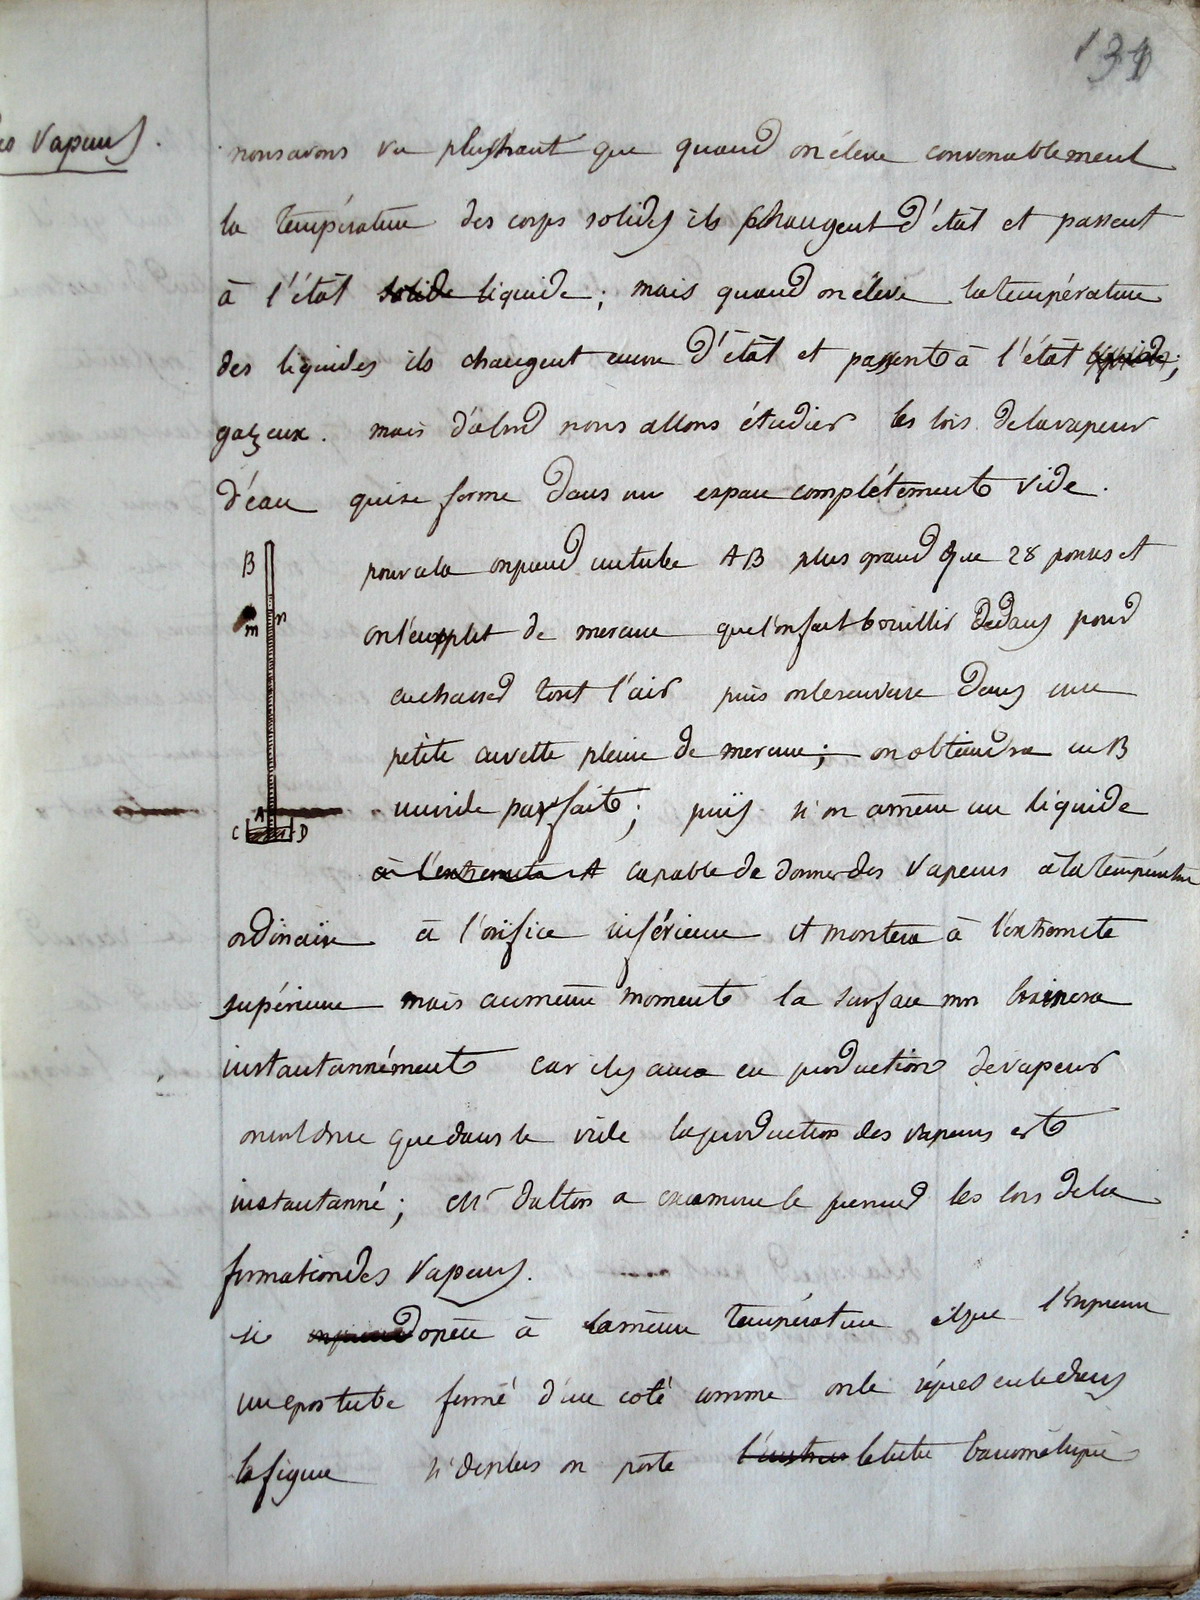 134
Vapeurs.
nous avons vu plus haut que quand on élève convenablement
la température des corps solides ils changent d'état et passent
à l'état solide liquide; mais quand on élève la température
des liquides ils changent encore d'état et passent à l'état liquide;
gazeux. mais d'abord nous allons étudier les lois de la vapeur
d'eau qui se forme dans un espace complétement vide.
B
pour cela on prend un tube AB plus grand que 28 pouces et
m n
on l'emplit de mercure que l'on fait bouillir dedans pour
en chasser tout l'air puis on le renverse dans une
petite cuvette pleine de mercure; on obtiendra en B
un vide parfait; puis si on amène un liquide
A
C D
à l'extremité A capable de donner des vapeurs à la température
ordinaire à l'orifice inférieure il montera à l'extremité
supérieure mais au même moment la surface mn baissera
instantannément car il y aura eu production de vapeur
on voit donc que dans le vide la production des vapeurs est
instantanné; Mr Dalton a examiné le premier les lois de la
formation des vapeurs.
si on prend opère à la même température et que l'on prenne
un gros tube fermé d'un coté comme on le représente dans
la figure si de plus on porte le tube barométrique